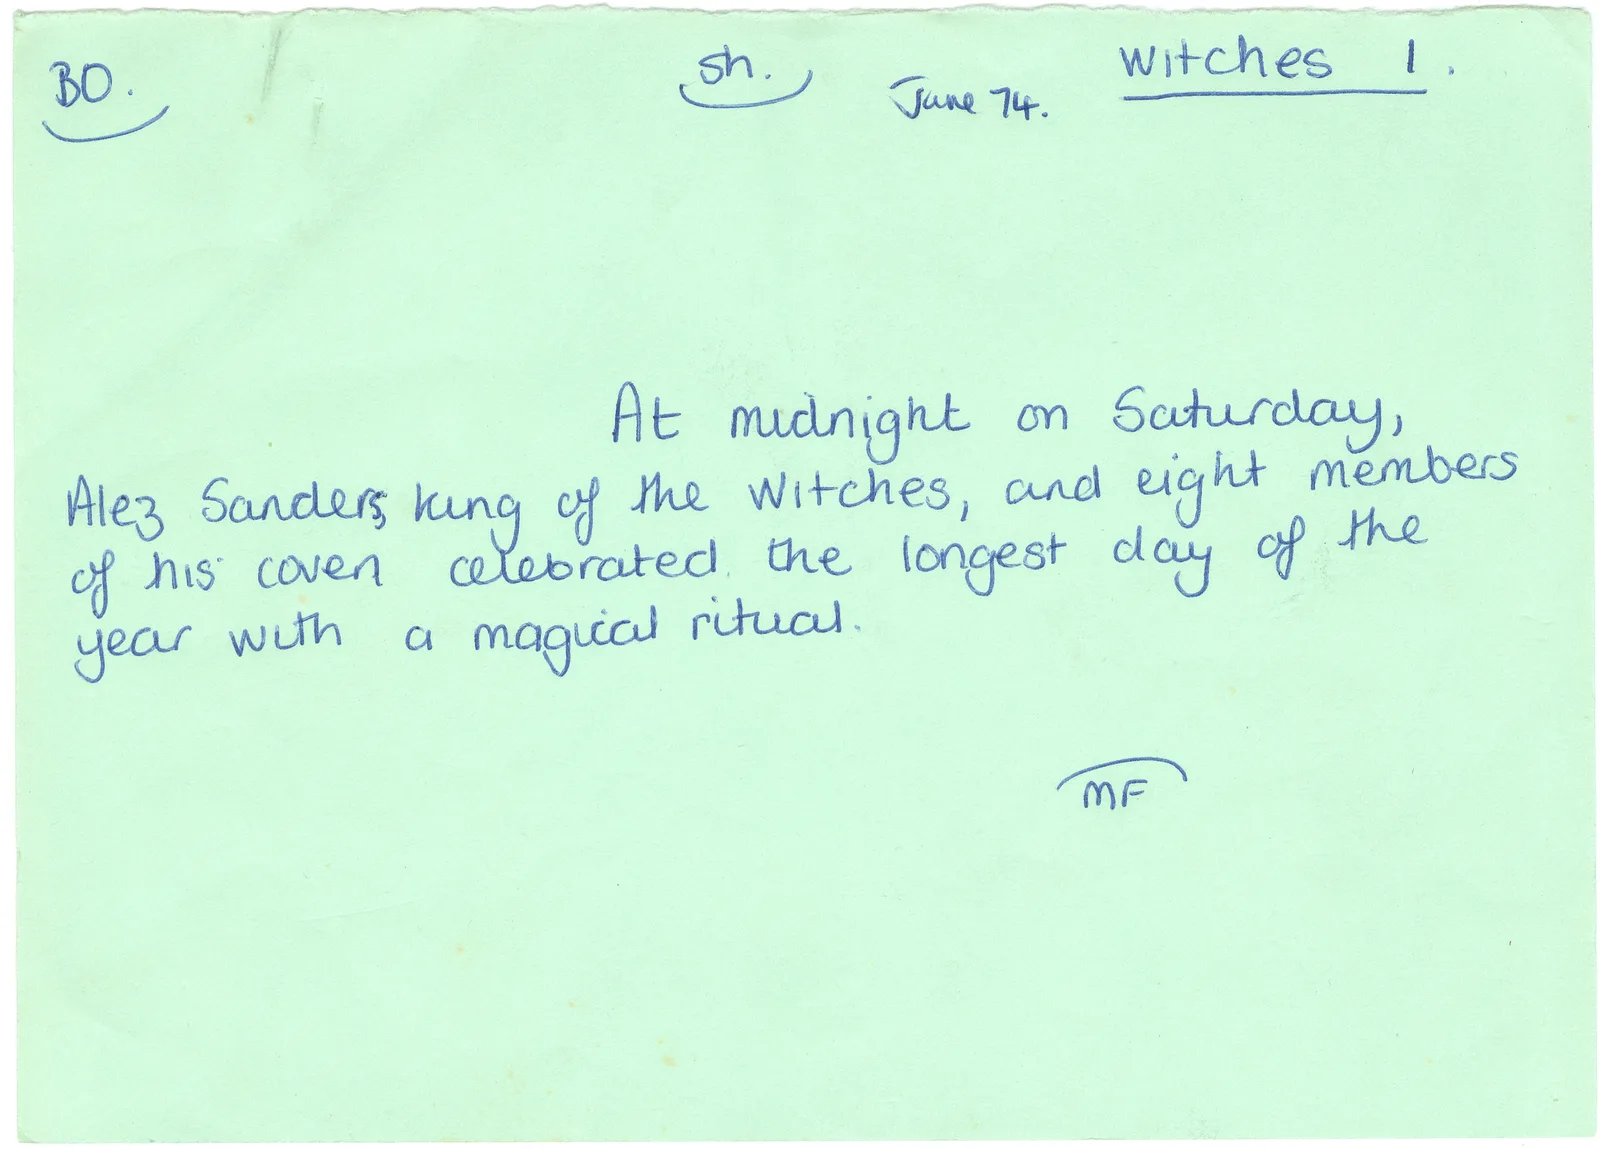 BO.
sh.
June 74.
Witches 1.
At midnight on Saturday,
Alez Sanders, king of the Witches, and eight members
of his coven celebrated the longest day of the
year with a magical ritual.
MF